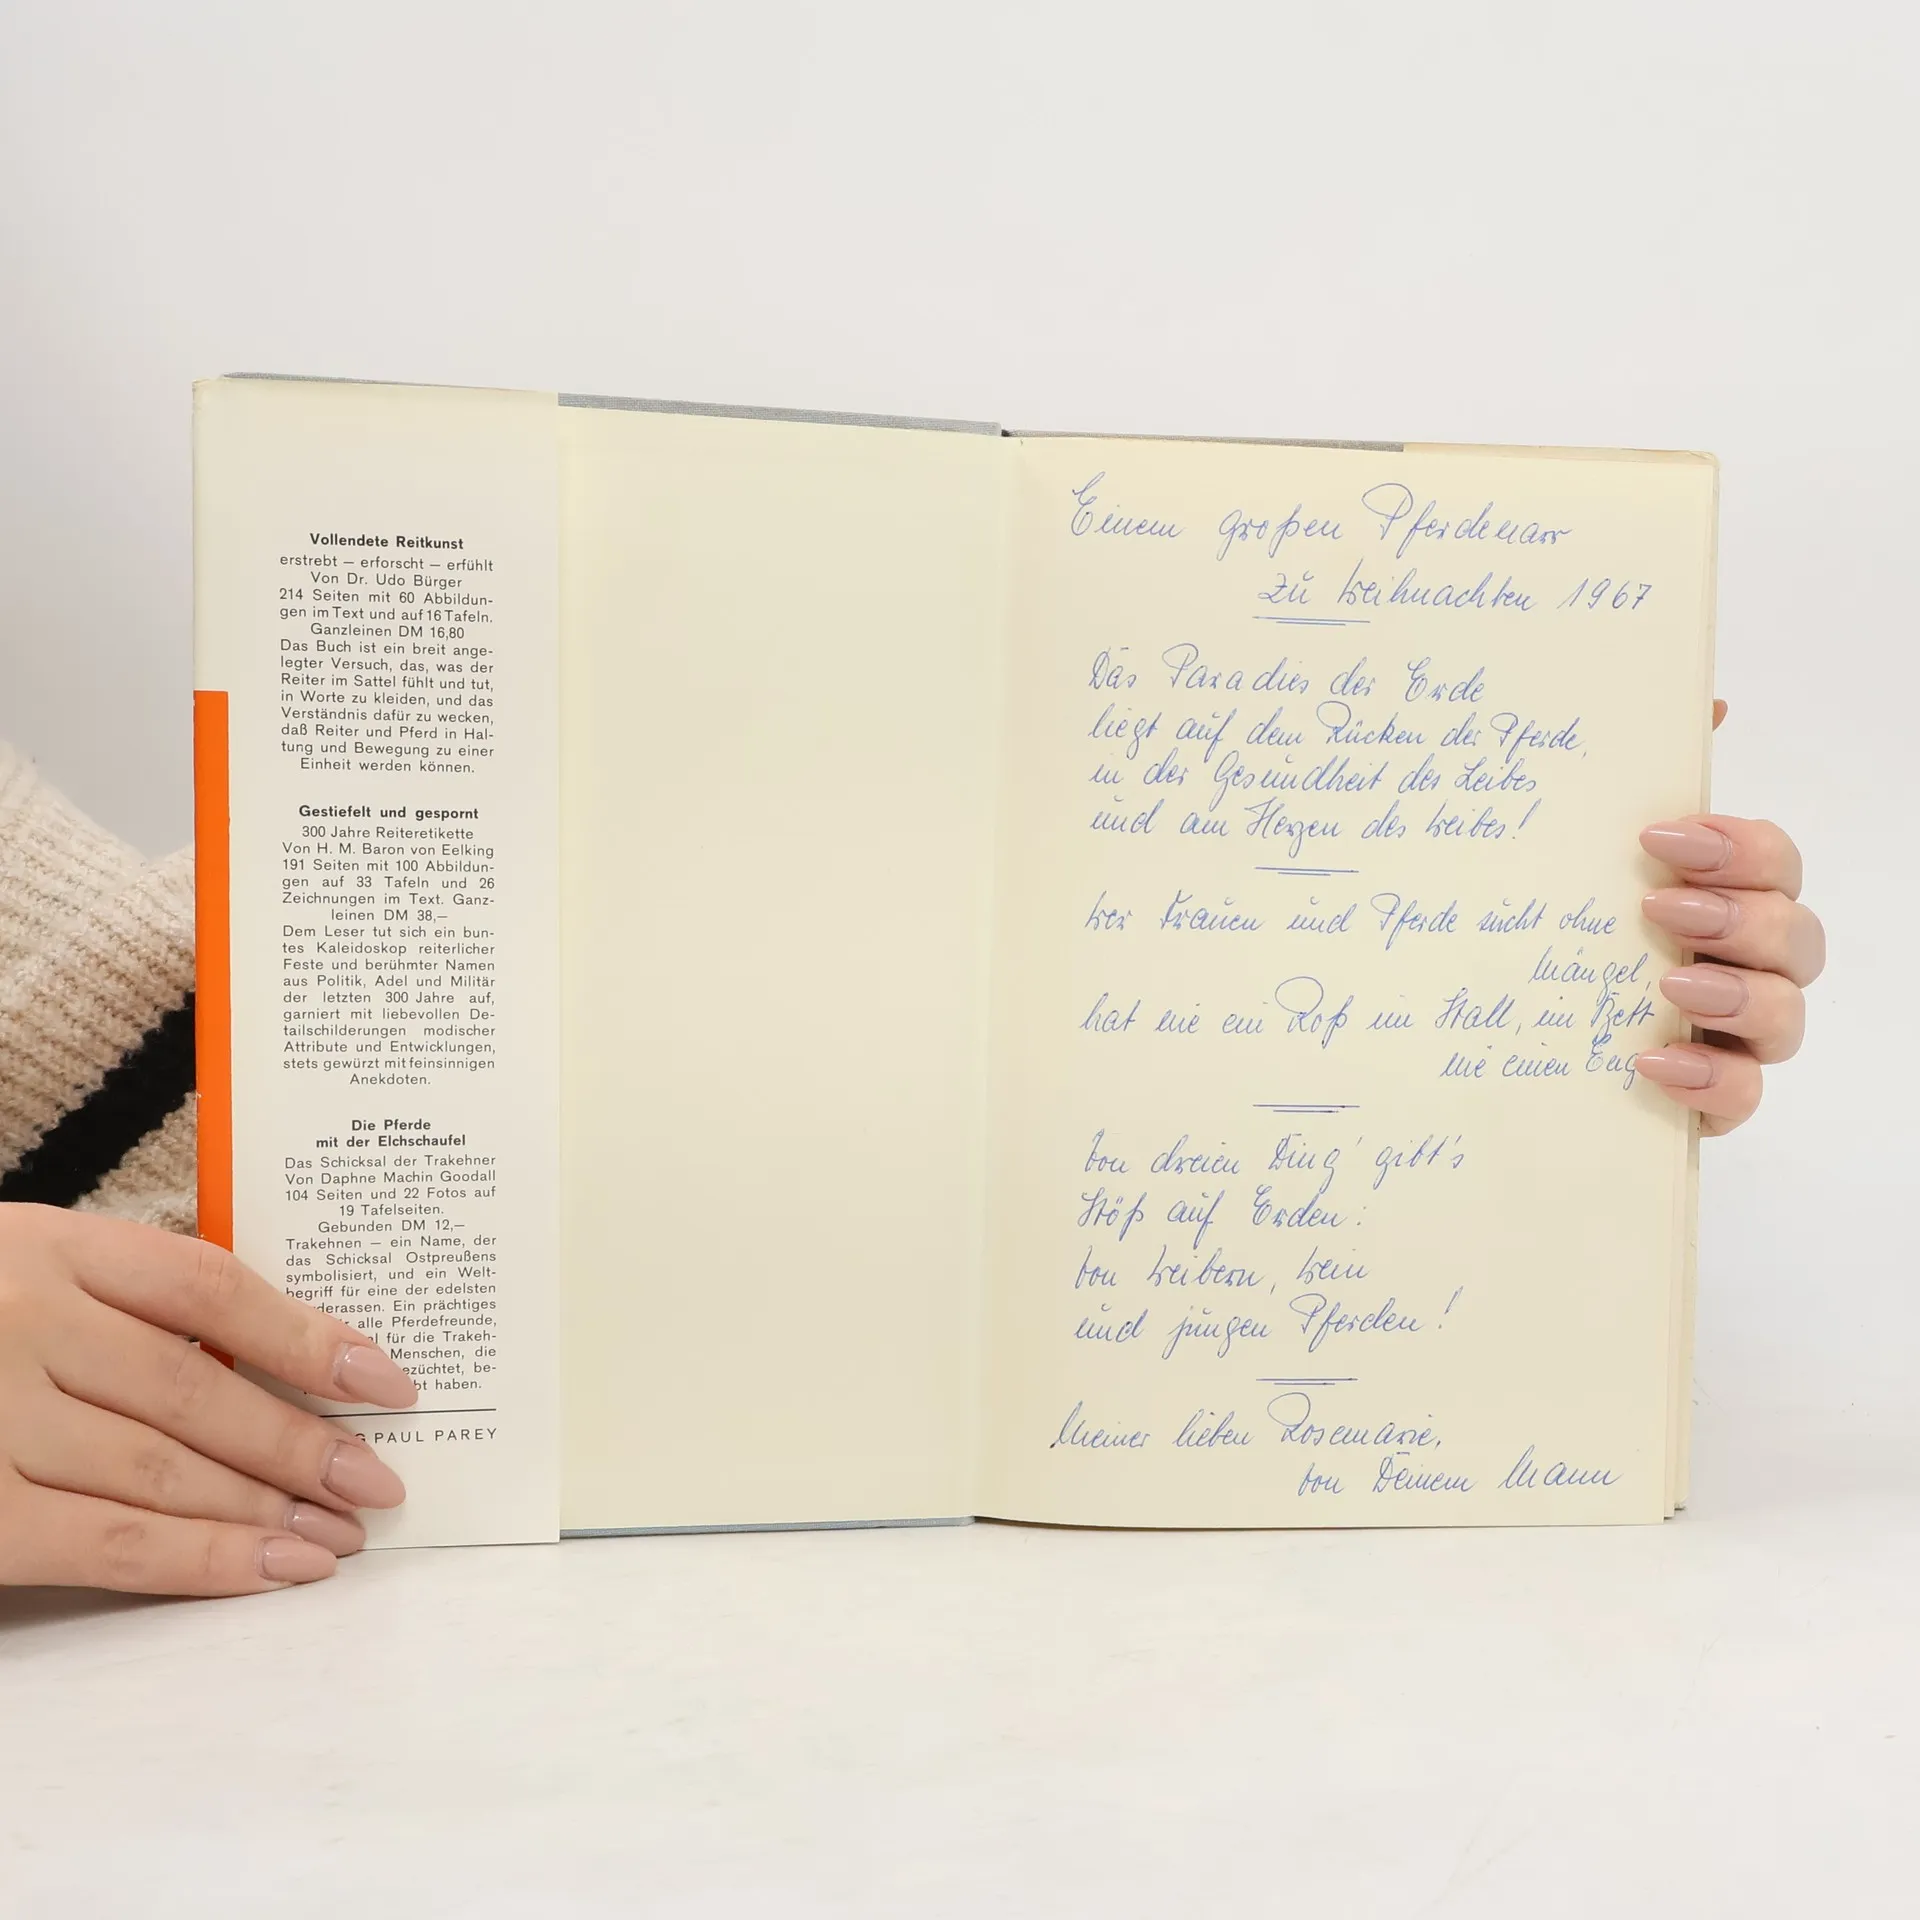 Vollendete Reitkunst
erstrebt — erforscht — erfühlt
Von Dr. Udo Bürger
214 Seiten mit 60 Abbildun-
gen im Text und auf 16 Tafeln.
Ganzleinen DM 16,80
Das Buch ist ein breit ange-
legter Versuch, das, was der
Reiter im Sattel fühlt und tut,
in Worte zu kleiden, und das
Verständnis dafür zu wecken,
daß Reiter und Pferd in Hal-
tung und Bewegung zu einer
Einheit werden können.
Gestiefelt und gespornt
300 Jahre Reiteretikette
Von H. M. Baron von Eelking
191 Seiten mit 100 Abbildun-
gen auf 33 Tafeln und 26
Zeichnungen im Text. Ganz-
leinen DM 38,—
Dem Leser tut sich ein bun-
tes Kaleidoskop reiterlicher
Feste und berühmter Namen
aus Politik, Adel und Militär
der letzten 300 Jahre auf,
garniert mit liebevollen De-
tailschilderungen modischer
Attribute und Entwicklungen,
stets gewürzt mit feinsinnigen
Anekdoten.
Die Pferde
mit der Elchschaufel
Das Schicksal der Trakehner
Von Daphne Machin Goodall
104 Seiten und 22 Fotos auf
19 Tafelseiten.
Gebunden DM 12,—
Trakehnen — ein Name, der
das Schicksal Ostpreußens
symbolisiert, und ein Welt-
begriff für eine der edelsten
derassen. Ein prächtiges
alle Pferdefreunde,
für die Trakeh-
Menschen, die
ezüchtet, be-
bt haben.
G PAUL PAREY
Einem großen Pferdenarr
zu Weihnachten 1967
Das Paradies der Erde
liegt auf dem Rücken der Pferde,
in der Gesundheit des Leibes
und am Herzen des Weibes!
Wer Frauen und Pferde sucht ohne
Mängel,
hat nie ein Roß im Stall, im Bett
nie einen Eng
Von dreien Ding' gibt's
Stöß auf Erden:
Von Weibern, Wein
und jungen Pferden!
Meiner lieben Rosemarie,
von Deinem Mann